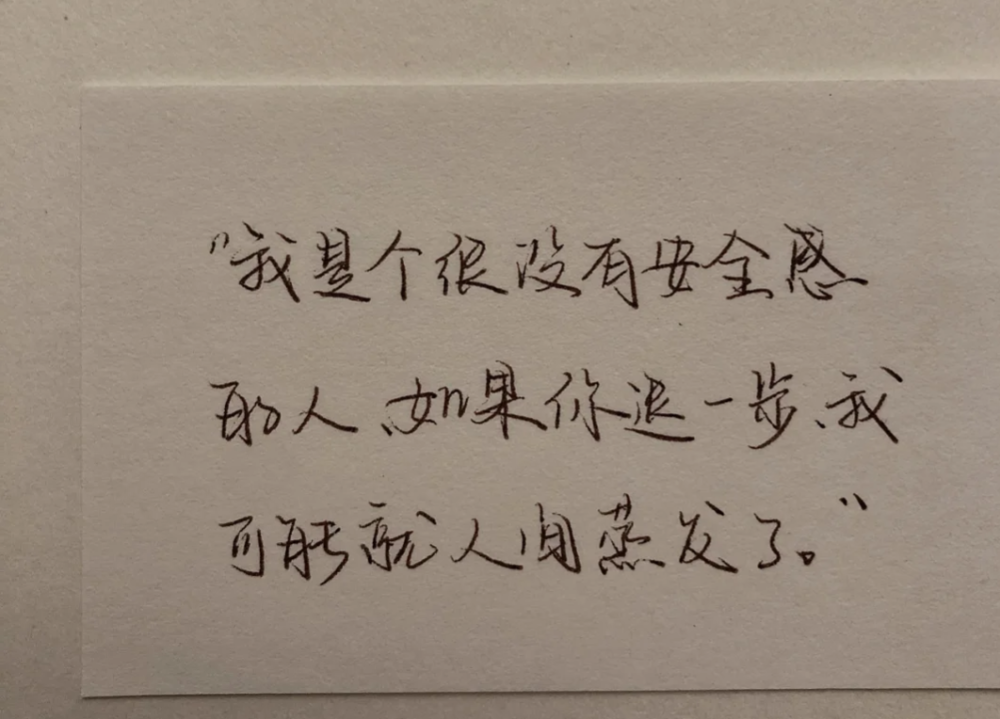 “我是个很没有安全感
的人、如果你退一步、我
可能就人间蒸发了。”